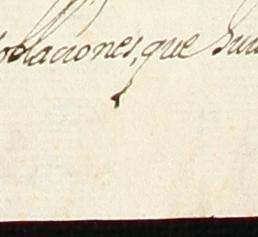 poblaciones, que